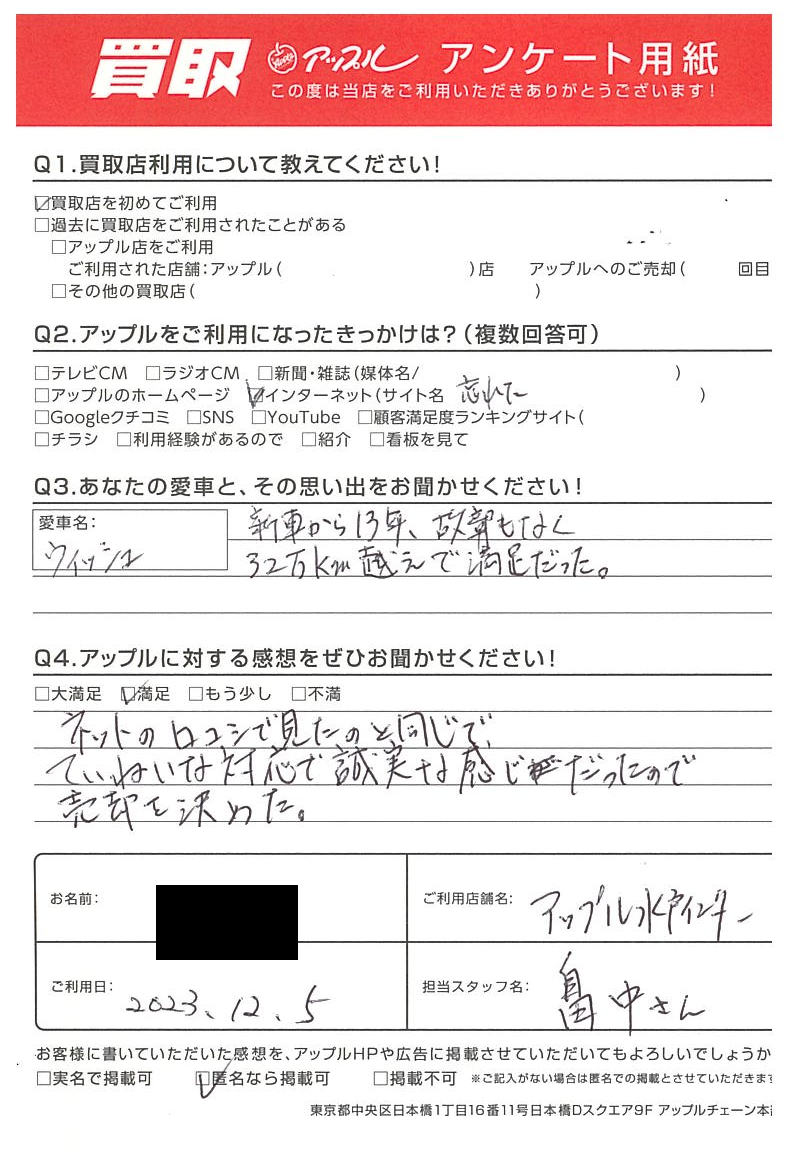 買取 アップル アンケート用紙
この度は当店をご利用いただきありがとうございます!
Q1.買取店利用について教えてください!
☑買取店を初めてご利用
□過去に買取店をご利用されたことがある
□アップル店をご利用
ご利用された店舗:アップル( )店 アップルへのご売却( 回目
□その他の買取店( )
Q2.アップルをご利用になったきっかけは?(複数回答可)
□テレビCM □ラジオCM □新聞・雑誌(媒体名/ )
□アップルのホームページ ☑インターネット(サイト名 忘れた )
□Googleクチコミ □SNS □YouTube □顧客満足度ランキングサイト(
□チラシ □利用経験があるので □紹介 □看板を見て
Q3.あなたの愛車と、その思い出をお聞かせください!
愛車名: 新車から13年、故障もなく
ウィッシュ 32万km越えで満足だった。
Q4.アップルに対する感想をぜひお聞かせください!
□大満足 ☑満足 □もう少し □不満
ネットの口コミで見たのと同じで
ていねいな対応で誠実な感じだったので
売却を決めた。
お名前: ご利用店舗名: アップル水戸インター
ご利用日: 2023.12.5 担当スタッフ名: 畠中さん
お客様に書いていただいた感想を、アップルHPや広告に掲載させていただいてもよろしいでしょうか
□実名で掲載可 ☑匿名なら掲載可 □掲載不可 ※ご記入がない場合は匿名での掲載とさせていただきます
東京都中央区日本橋1丁目16番11号日本橋Dスクエア9F アップルチェーン本